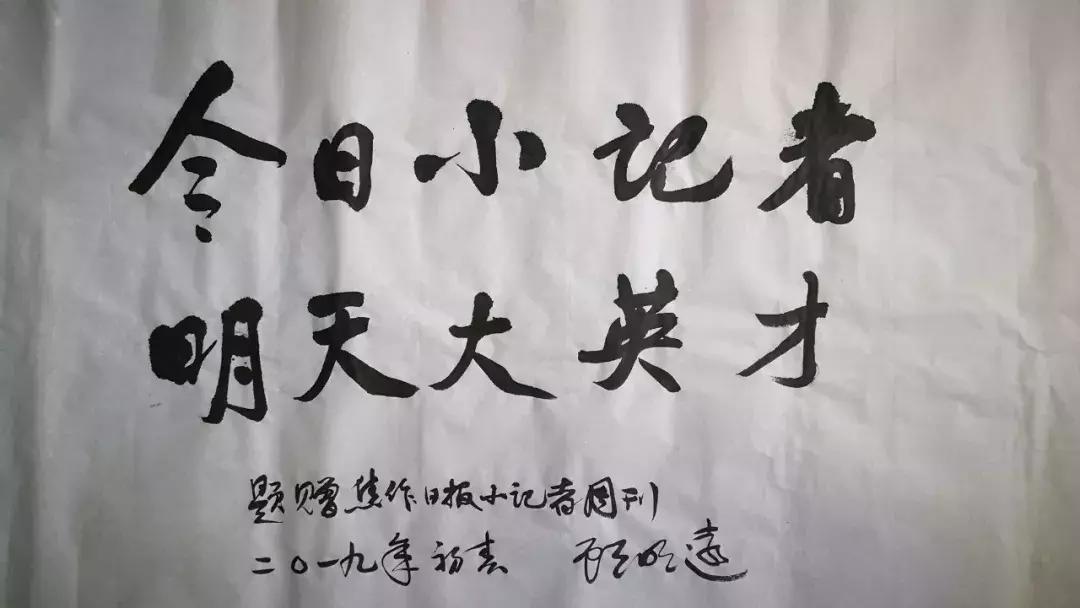 今日小记者
明天大英才
题赠焦作日报小记者周刊
二〇一九年初春 顾明远